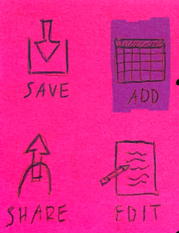 SAVE
ADD
SHARE
EDIT